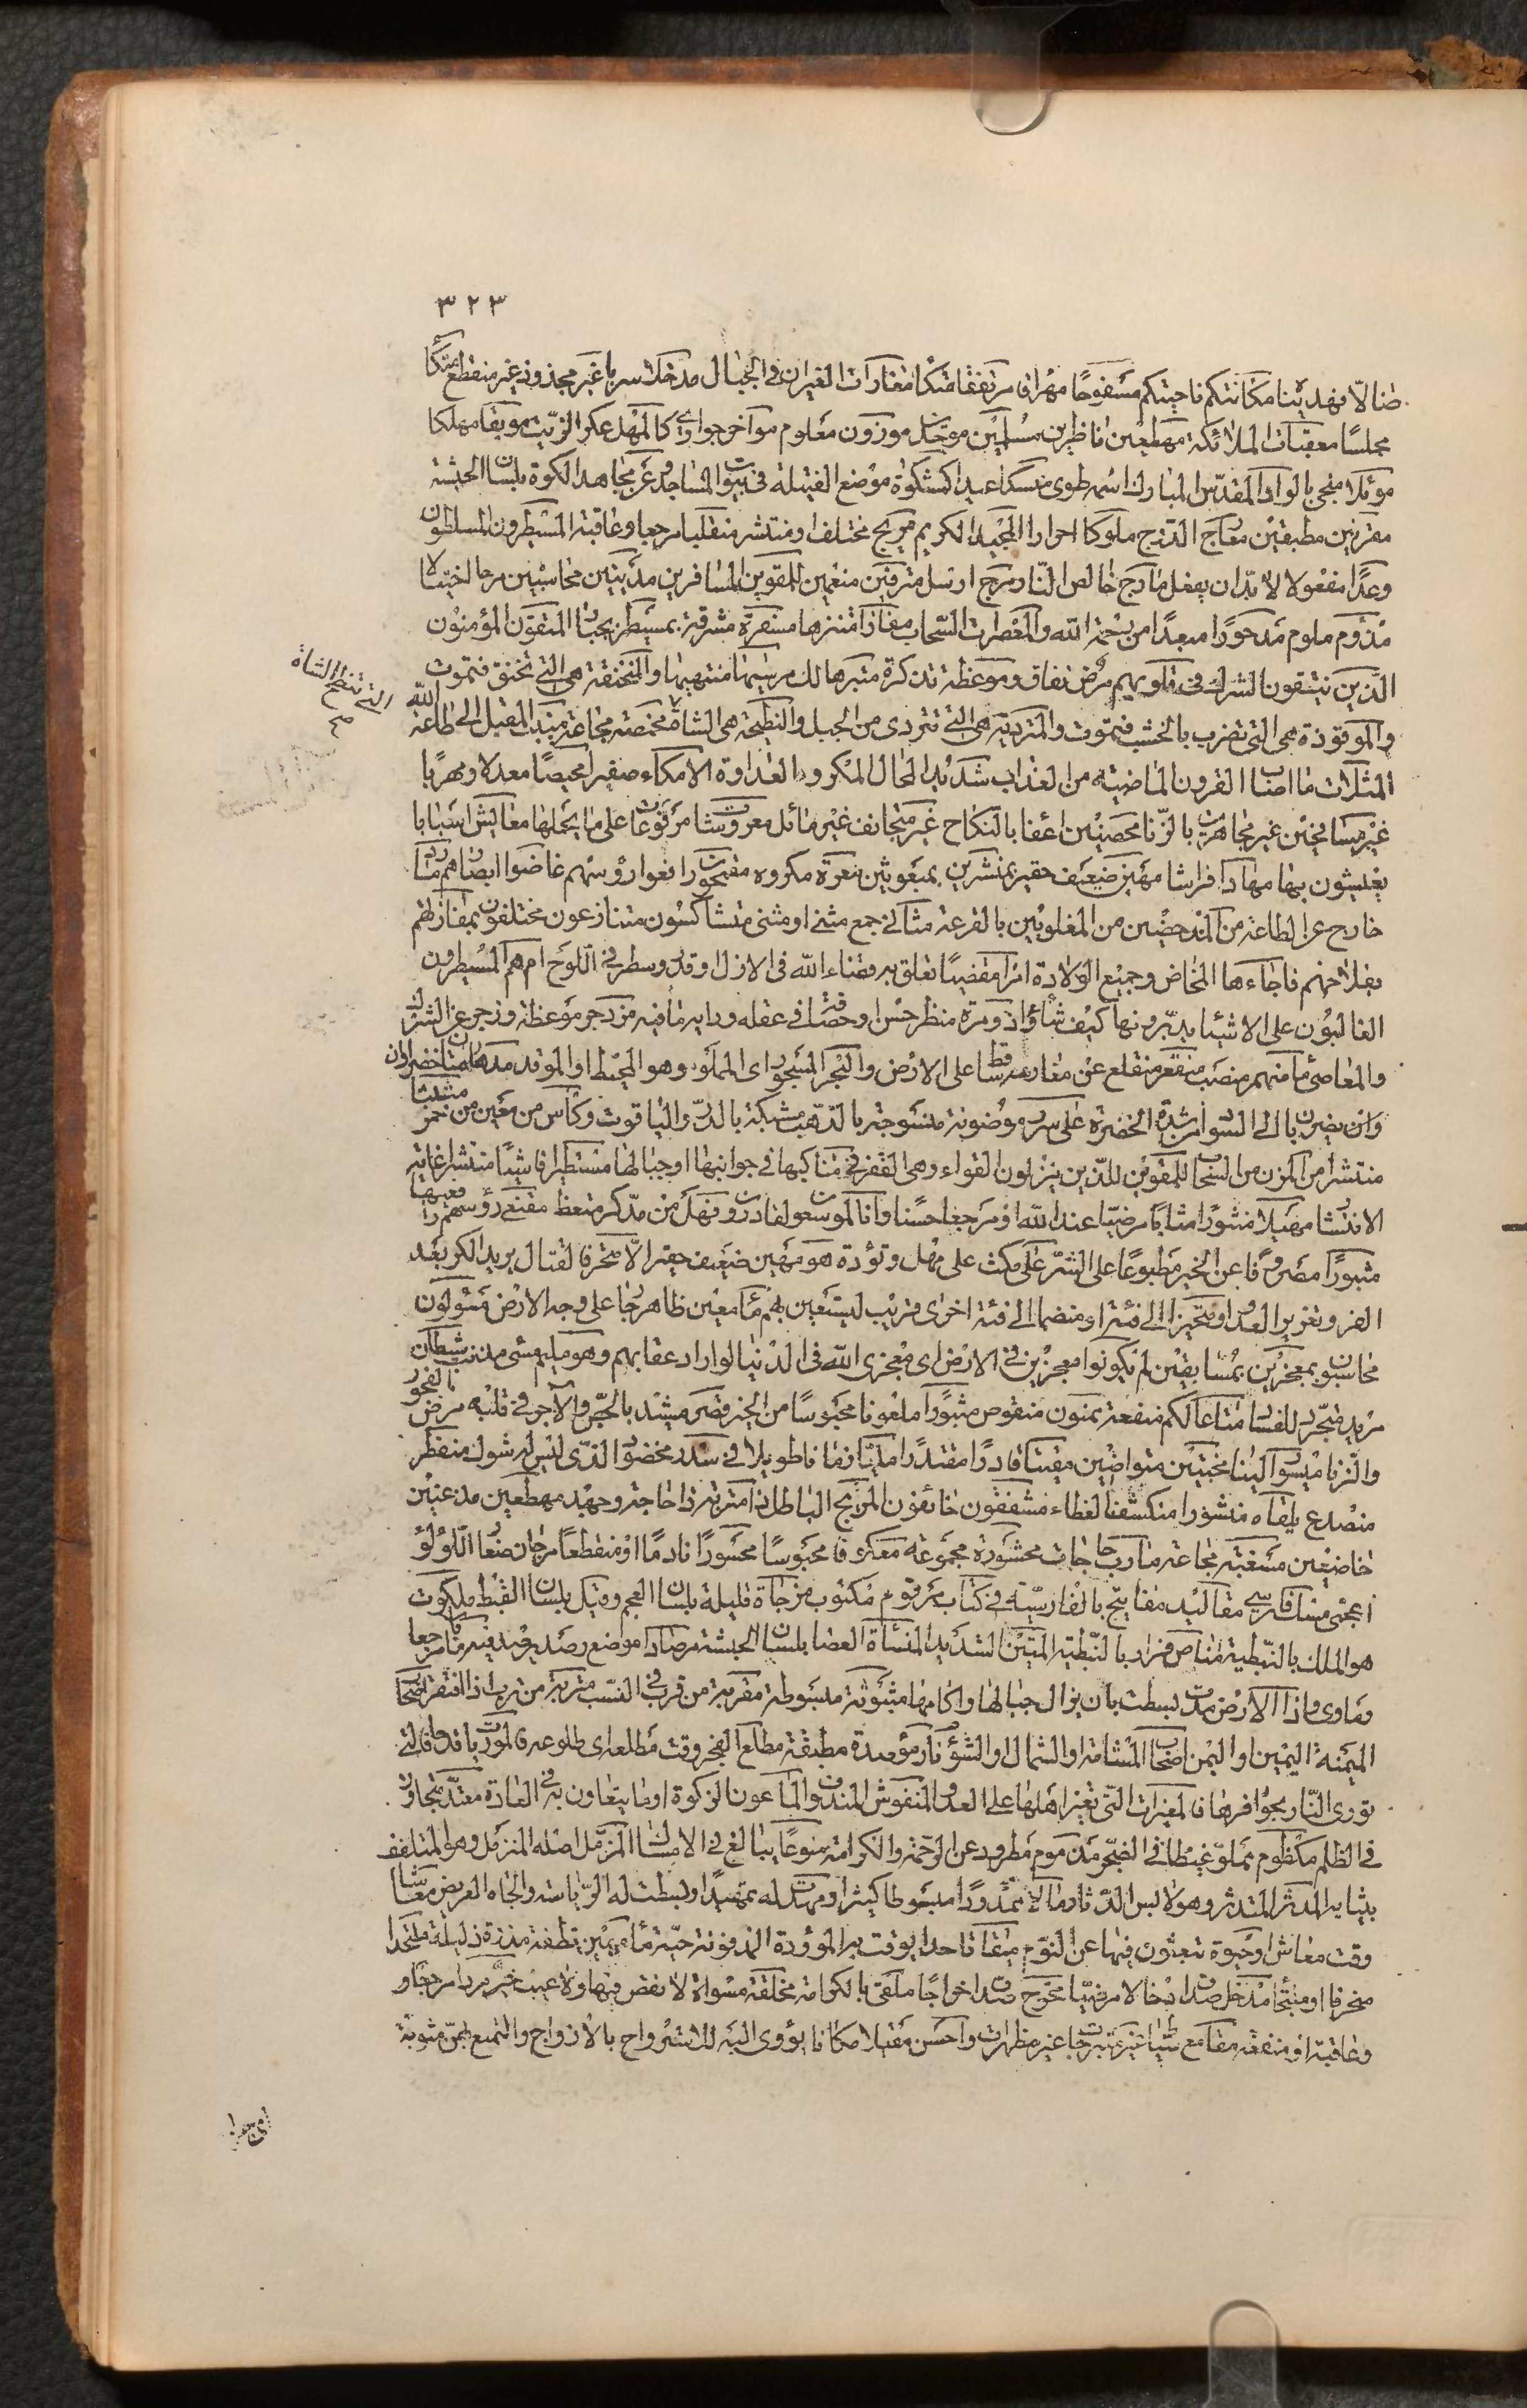 ٣٢٣
ضالا فهدينا مكانتكم ناحيتكم مسفوحا مهراق مرتفقا متكا مغارات الغيران في الجبال مدخلا سربا غير مجذوذ غير منقطع متكأ
مجلسا معقبات الملائكة مهطعين ناظرين مسلمين موزون معلوم مواخر جواري كالمهل عكر الزيت موبقا مهلكا
موئلا منجى بالواد المقدس المبارك اسمه طوى منسكا عيدا كمشكوة موضع الفتيلة في بيوت المساجد عن مجاهد الكوة بلسان الحبشة
مقرنين مطبقين معارج الدرج ملوكا احرارا المجيد الكريم مريج مختلف او منتشر منقلبا مرجعا وعاقبة المسيطرون المسلطون
وعدا مفعولا لا بد ان يفعل مارج خالص النار مرج ارسل مترفين منعمين للمقوين المسافرين مدينين محاسبين مرحا اختيالا
مذؤم ملوم مدحورا مبعدا من رحمة الله والمعصرات السحاب مفازا متنزها مسفرة مشرقة بمسيطر بجبار المتقون المؤمنون
الذين يتقون الشرك في قلوبهم مرض نفاق وموعظة تذكرة متبر هالك مرسيها منتهيها والمنخنقة هي التي تخنق فتموت
والموقوذة هي التي تضرب بالخشب فتموت والمتردية هي التي تتردى من الجبل والنطيحة هي الشاة مخمصة مجاعة منيب المقبل الى طاعة الله
التي تنطح الشاة
صح
المثلات ما اصاب القرون الماضية من العذاب شديد المحال المكر والعداوة الا مكاء صفيرا محيصا معدلا ومهربا
غير مسافحين غير مجاهرين بالزنا محصنين اعفا بالنكاح غير متجانف غير مائل معروشات مرفوعات على ما يحملها معايش اسبابا
يعيشون بها مهادا فراشا مهين ضعيف حقير بمنشرين بمبعوثين معرة مكروه مقمحون رافعوا رؤسهم غاضوا ابصارهم مارد
خارج عن الطاعة من المدحضين من المغلوبين بالقرعة مثاني جمع مثنى او مثنى متشاكسون متنازعون مختلفون بمفازتهم
بفلاحهم فاجاءها المخاض وجميع الولادة امرا مقضيا تعلق به قضاء الله في الازل او قدر وسطر في اللوح ام هم المسيطرون
الغالبون على الاشياء يدبرونها كيف شاؤا ذو مرة منظر حسن او حصافة في عقله ورايه ما فيه مزدجر موعظة وزجر عن الشرك
والمعاصي منهمر منصب منقعر منقلع عن مغارسه ساقط على الارض والبحر المسجور اى المملو وهو المحيط او الموقد مدهامتان خضراوان
وان يضربان الى السواد من شدة الخضرة على سرر موضونة منسوجة بالذهب مشبكة بالدر والياقوت وكأس من معين من خمر
منتشرا من المزن من السحاب للمقوين للذين ينزلون القواء وهي القفر في مناكبها في جوانبها او جبالها مستطيرا فاشيا منتشرا غاية
الانتشار مهيلا منثورا مثابا مرضيا عند الله او مرجعا حسنا وانا لموسعون لقادرون فهل من مدكر متعظ مقنعى رؤسهم رافعيها
مثبورا مصروفا عن الخير مطبوعا على الشر على مكث على مهل وتؤدة هو مهين ضعيف حقير الا متحرفا لقتال يريد الكر بعد
الفر وتغرير العدو او متحيزا الى فئة او منضما الى فئة اخرى قريب ليستعين بهم ماء معين ظاهر جار على وجه الارض مسؤلون
محاسبون بمعجزين بمسابقين لم يكونوا معجزين في الارض اى معجزى الله في الدنيا لو اراد عقابهم وهو مليم مسئ مذنب شيطان
مريد متجرد للفساد متاعا لكم منفعة ممنون منقوص مثبورا ملعونا محبوسا من الخير قصر مشيد بالجص والآجر في قلبه مرض الفجور
والزنا ميسورا لينا مخبتين متواضعين مقيتا قادرا مقتدرا مليا زمانا طويلا في سدر مخضود الذى ليس له شوك منفطر
منصدع يلقاه منشورا منكشف الغطاء مشفقون خائفون المريج الباطل ذا متربة ذا حاجة وجهد مهطعين مذعنين
خاضعين مسغبة مجاعة مآرب حاجات محشورة مجموعة معكوفا محبوسا محسورا نادما او منقطعا مرجان صغار اللؤلؤ
اعجمى مسك فارسى مقاليد مفاتيح بالفارسية في كتاب مرقوم مكتوب مزجاة قليلة بلسان العجم وقيل بلسان القبط ملكوت
هو الملك بالنبطية مناص فرار بالنبطية المتين الشديد المنسأة العصا بلسان الحبشة مرصادا موضع رصد يرصد فيه مآبا مرجعا
ومأوى واذا الارض مدت بسطت بان يزال جبالها واكامها مبثوثة مبسوطة مقربة من قرب في النسب متربة من ترب اذا افتقر اصحاب
الميمنة اليمين او اليمن اصحاب المشامة والشمال او الشؤم نار مؤصدة مطبقة مطلع الفجر وقت مطلعه اى طلوعه فالموريات قدحا فالتي
تورى النار بحوافرها فالمغيرات التي تغير اهلها على العدو المنفوش المندوف والماعون الزكوة او ما يتعاون به في العادة معتد متجاوز
في الظلم مكظوم مملو غيظا في الضجر مذموم مطرود عن الرحمة والكرامة منوعا يبالغ في الامساك المزمل اصله المتزمل وهو المتلفف
بثيابه المدثر المتدثر وهو لابس الدثار مالا ممدودا مبسوطا كثيرا ومهدت له تمهيدا وبسطت له الرياسة والجاه العريض معاشا
وقت معاش او حيوة تبعثون فيها عن النوم ميقاتا حدا يوقت به الموؤدة المدفونة حية ماء مهين نطفة مذرة ذليلة ملتحدا
منحرفا او ملتجأ مدخل صدق ادخالا مرضيا مخرج صدق اخراجا ملقى بالكرامة مخلقة مسواة لا نقص فيها ولا عيب خير مردا مرجعا و
وعاقبة او منفعة مقامع سياط غير متبرجات غير مظهرات واحسن مقيلا مكانا يؤوى اليه للاسترواح بالازواج والتمتع بهن مثوبة